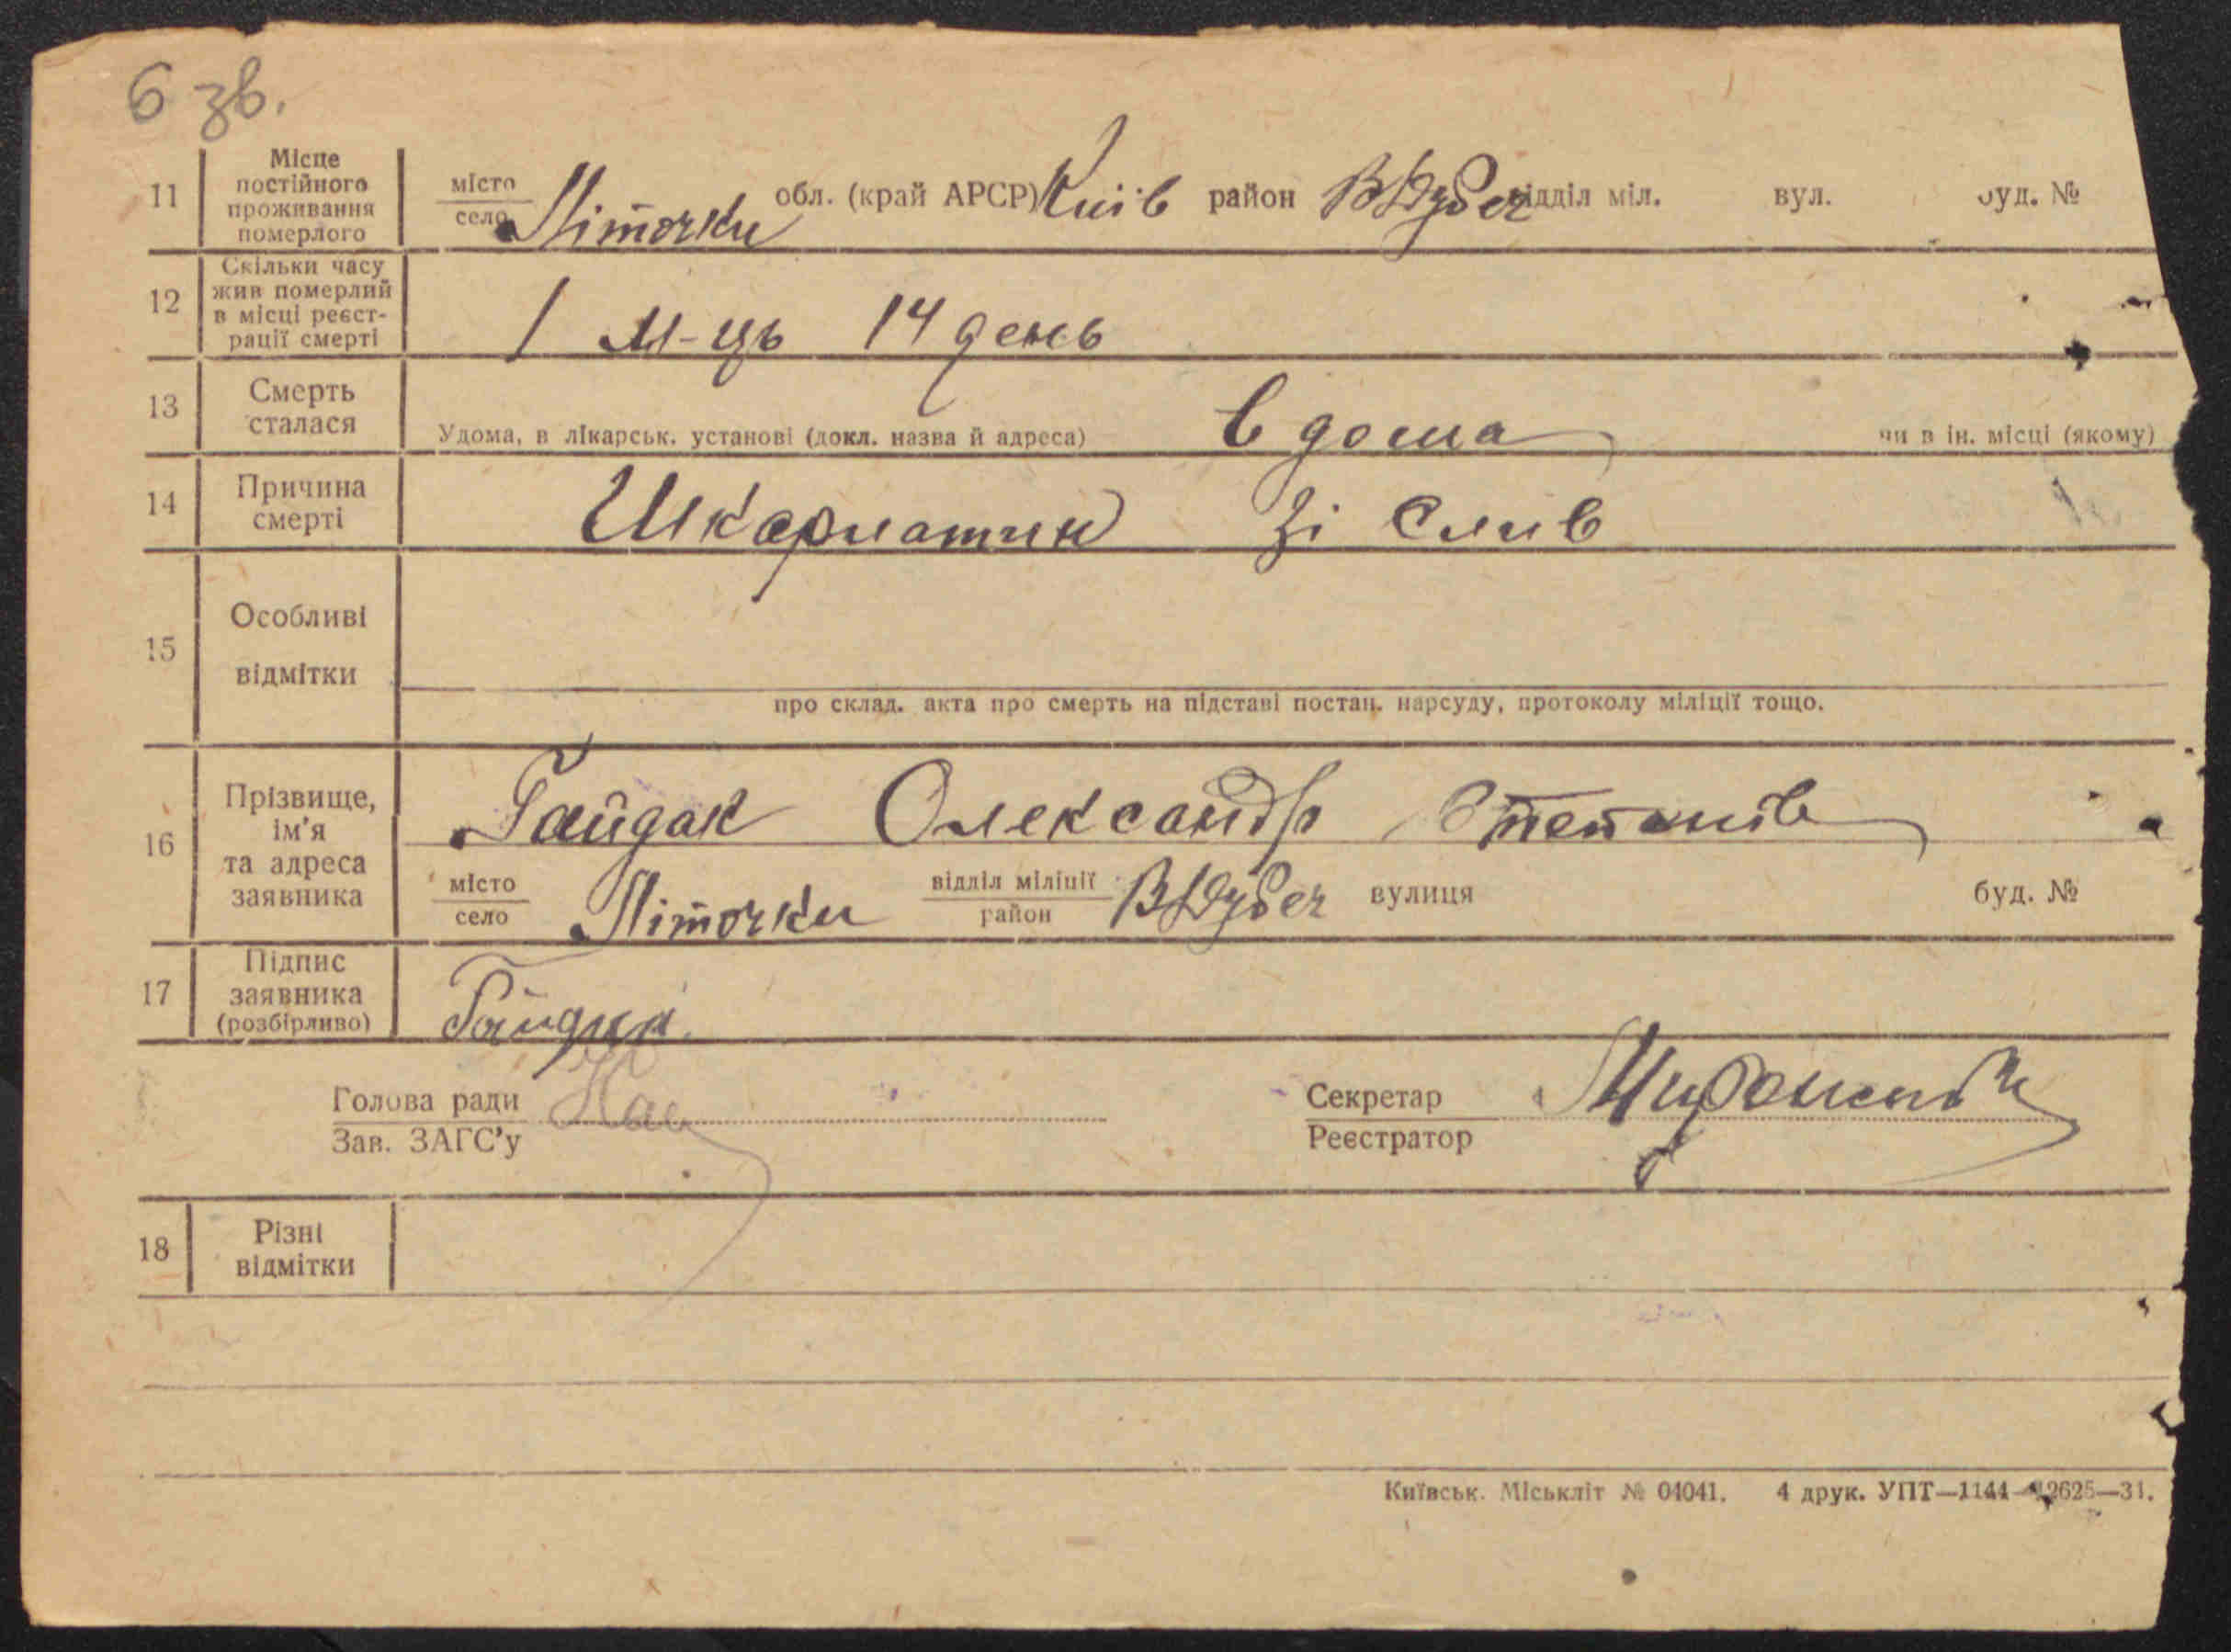 6 зв.
11 Місце постійного проживання померлого місто село Літочки обл. (край АРСР) Київ район ВДубеч відділ міл. вул. буд. №
12 Скільки часу жив померлий в місці реєстрації смерті 1 м-ць 14 день
13 Смерть сталася Удома, в лікарськ. установі (докл. назва й адреса) в дома чи в ін. місці (якому)
14 Причина смерті Шкарлатин
15 Особливі відмітки
про склад. акта про смерть на підставі постан. нарсуду, протоколу міліції тощо.
16 Прізвище, ім'я та адреса заявника Гайдак Олександр Степанів
місто село Літочки відділ міліції район ВДубеч вулиця буд. №
17 Підпис заявника (розбірливо) Гайдак
Голова ради Секретар
Зав. ЗАГС'у Реєстратор
18 Різні відмітки
Київськ. Міськліт № 04041. 4 друк. УПТ—1144—12625—31.